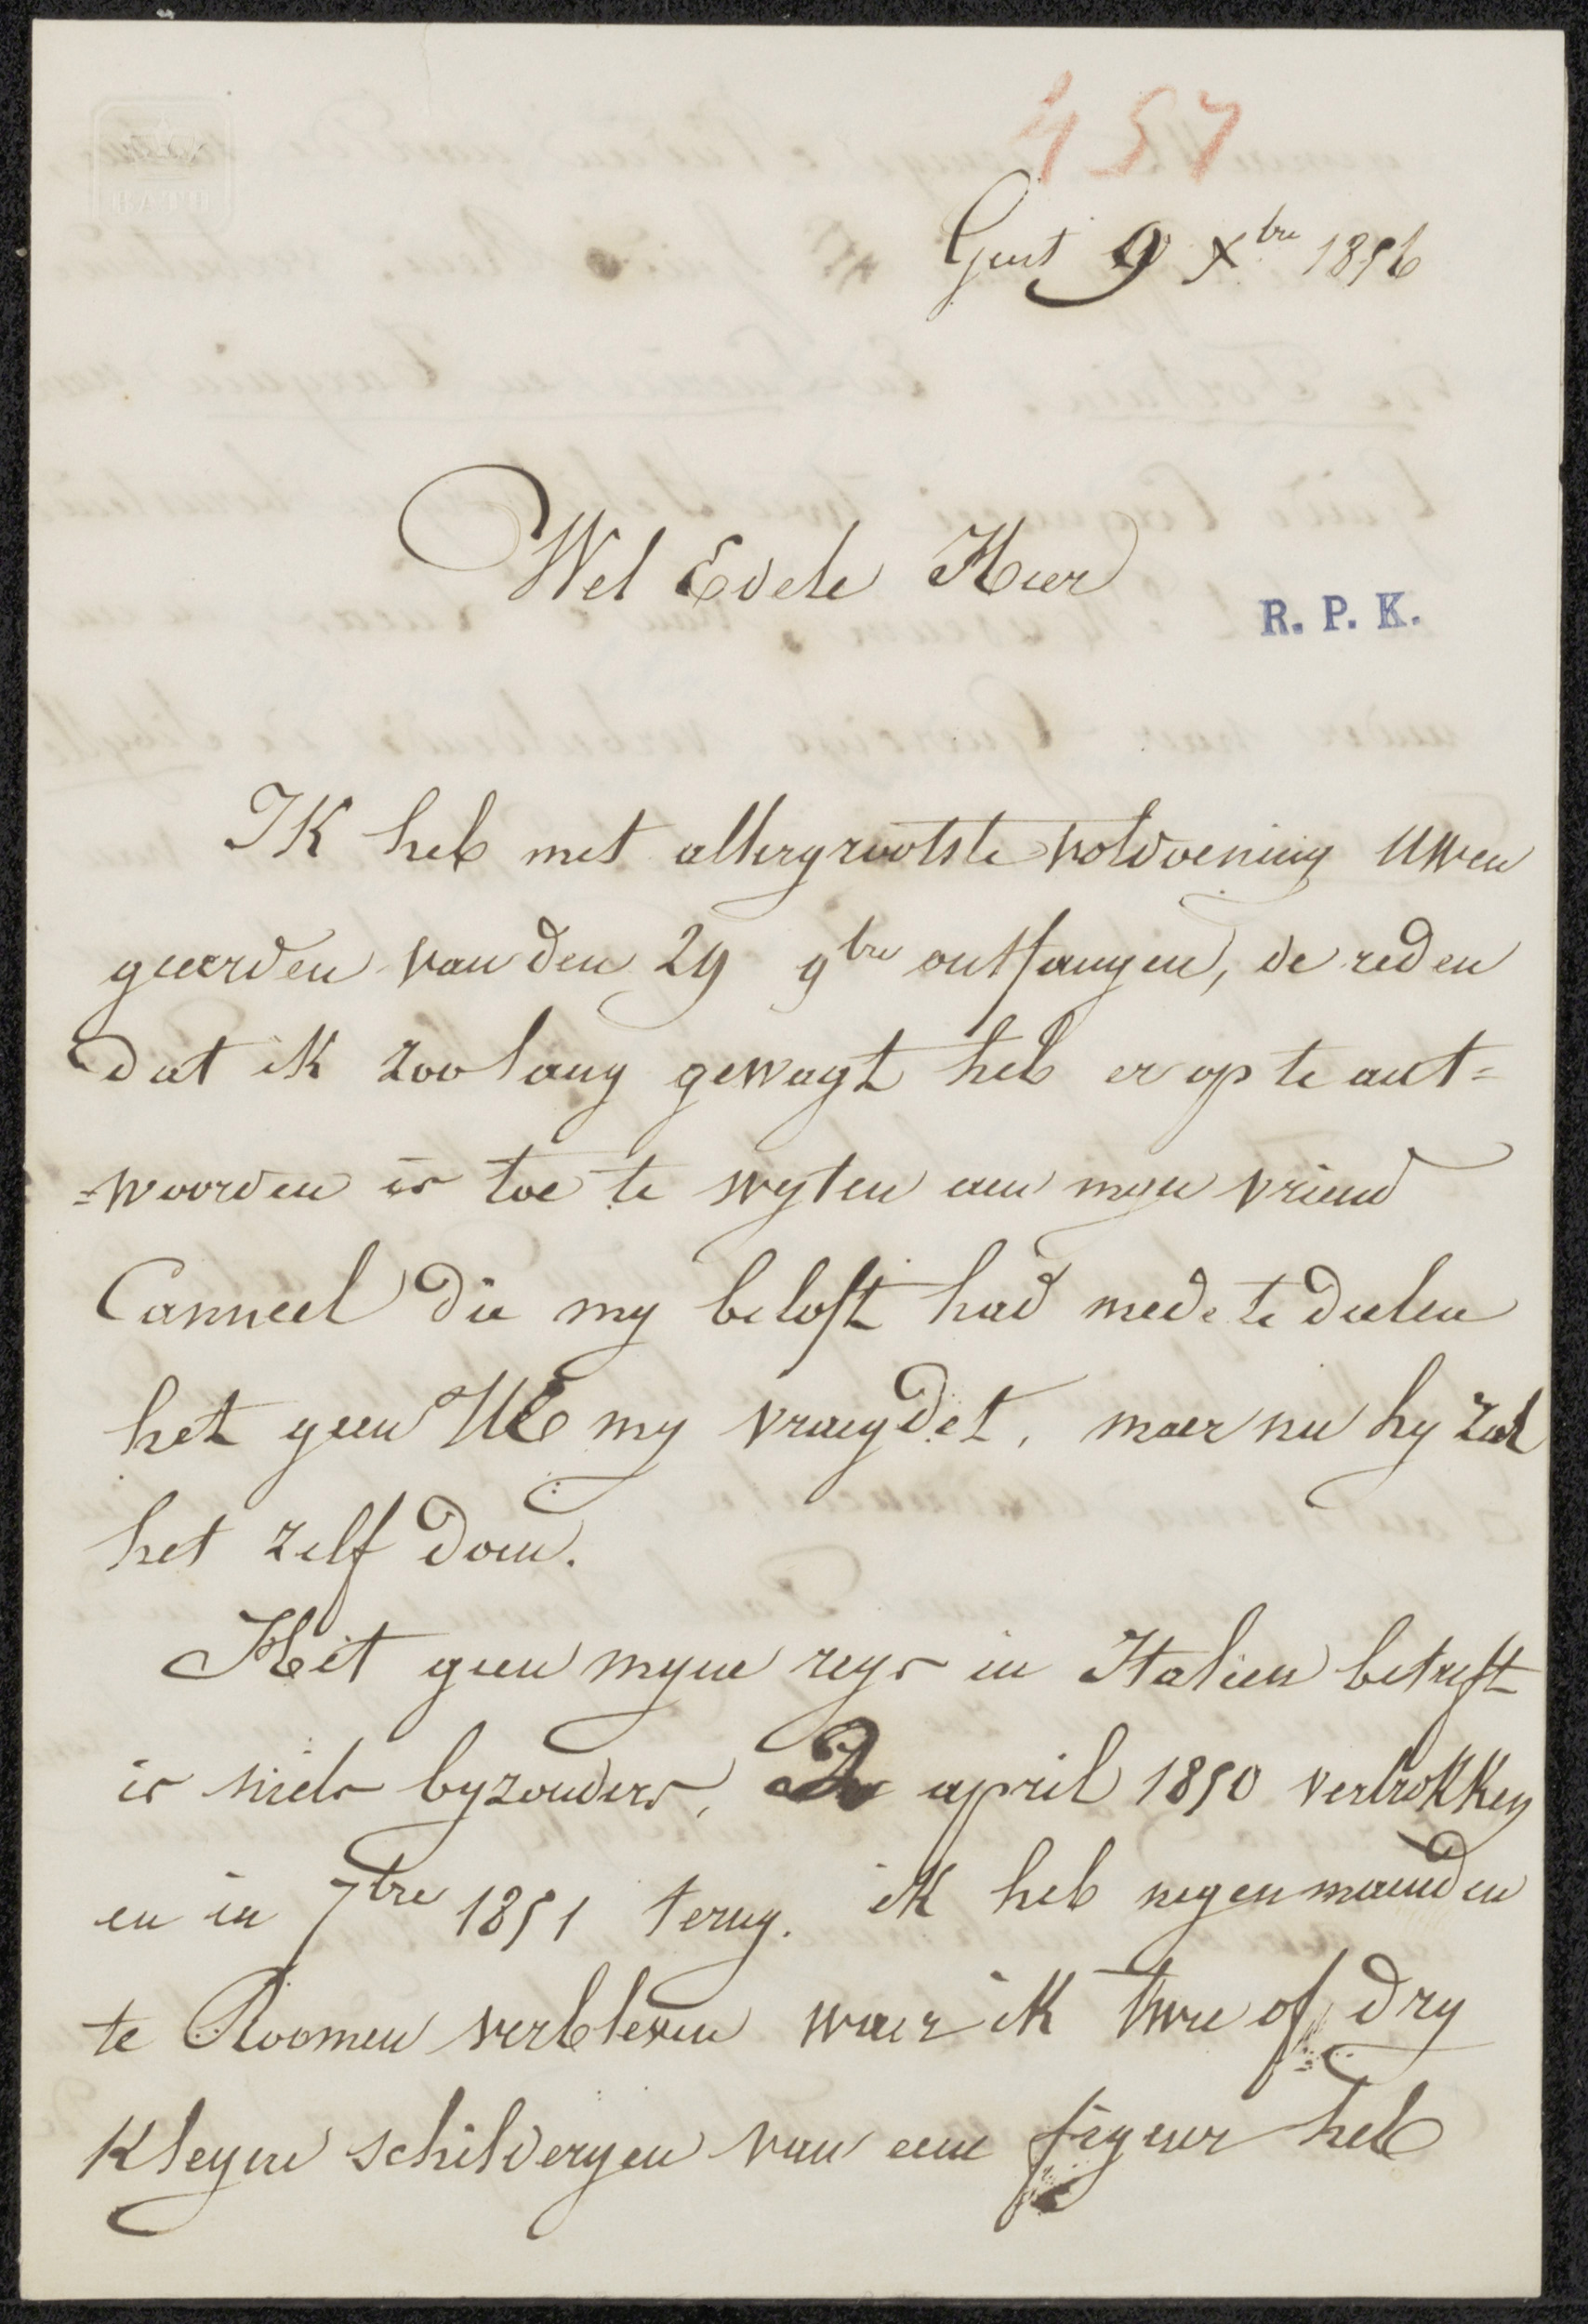 457
Gent 9 Xbre 1856
Wel Edele Heer
R. P. K.
IK heb met allergrootste voldoening Uwen
geerden van den 29 9bre ontfangen, de reden
dat ik zoo lang gewagt heb er op te ant=
=woorden is toe te wyten aen myn vriend
Canneel die my beloft had mede te deelen
het geen UE my vraegdet, maer nu hy zal
het zelf doen.
Het geen myne reys in Italien betreft
is niets byzonders, april 1850 vertrokken
en in 7bre 1851 terug. ik heb negen maenden
te Roomen verbleven waer ik twee of dry
kleyne schilderyen van eene figuer heb